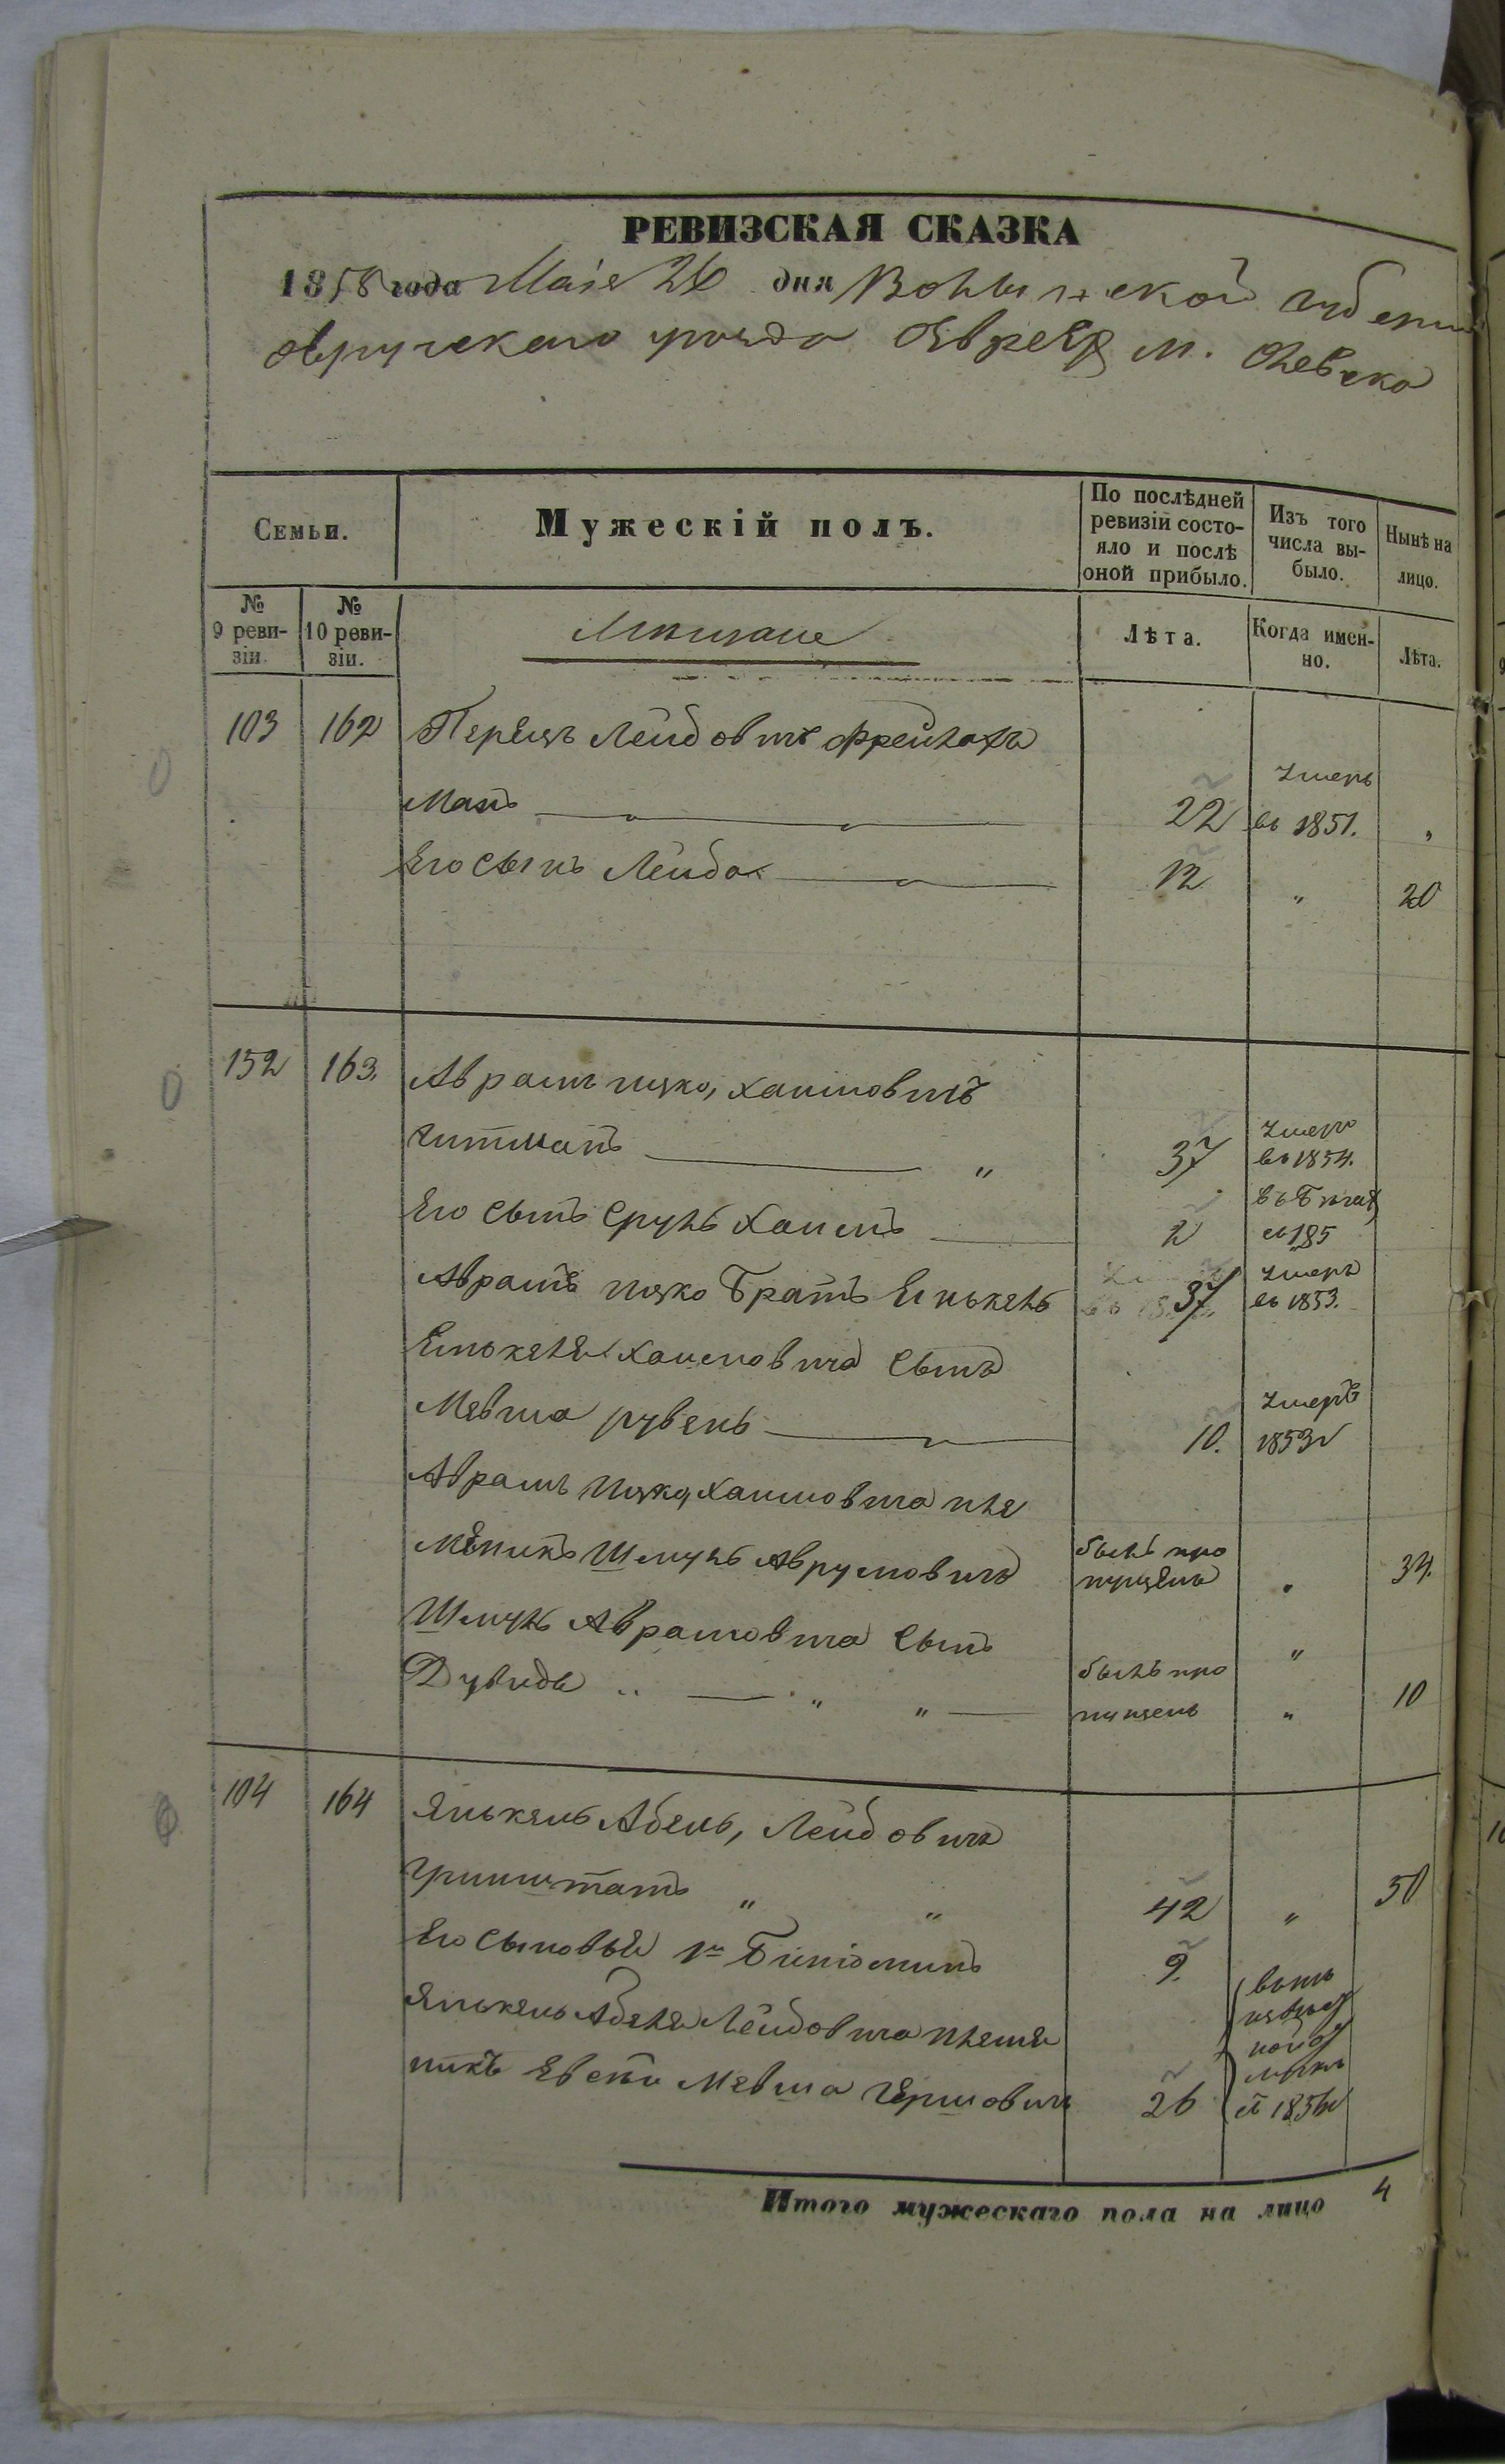 РЕВИЗСКАЯ СКАЗКА
1858 года Маія 26 дня Волынской губерн
Овручскаго уезда Еврей м. Олевска
Семьи.
Мужескій полъ.
По послѣдней ревизіи состо-
яло и послѣ
оной прибыло.
Изъ того
числа вы-
было.
Нынѣ на
лицо.
№
9 реви-
зіи.
№
10 реви-
зіи.
Мещане
Лѣта.
Когда имен-
но.
Лѣта.
103 162 Перецъ Лейбовичъ Фрейлахъ
Манъ 22 умеръ въ 1851. "
Его сынъ Лейба 12 " 20
152 163. Аврамъ Ицко, Хаимовичъ
Гитманъ " 37 умеръ въ 1854.
Его сынъ Сруль Хаимъ 2 въ бегах съ 185
Аврамъ Ицко братъ Енькель 37 умеръ въ 1853.
Енькеля Хаимовича сынъ
Мевша рувень 10. умеръ 1853
Аврамъ Ицка Хаимовича пле
меникъ Шмуль Аврумовичъ былъ про пущенъ " 34.
Шмуль Аврамовича сынъ "
Дувидъ " " " былъ про пущенъ " 10
104 164 Янькель Абель, Лейбовичъ
Гринштатъ " " 42 " 50
Его сыновья 1й Биніоминъ 9.
Янькель Абеля Лейбовича племя
никъ Евсей Мевша Гершовичъ 26 въ 1856
Итого мужескаго пола на лицо 4